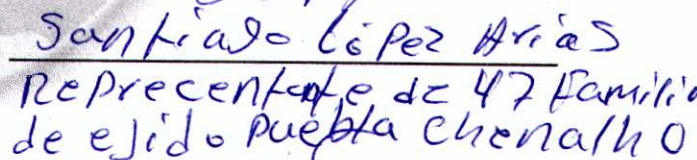 Santiago López Arias
Reprecentante de 47 Familia
de ejido Puebla Chenalho